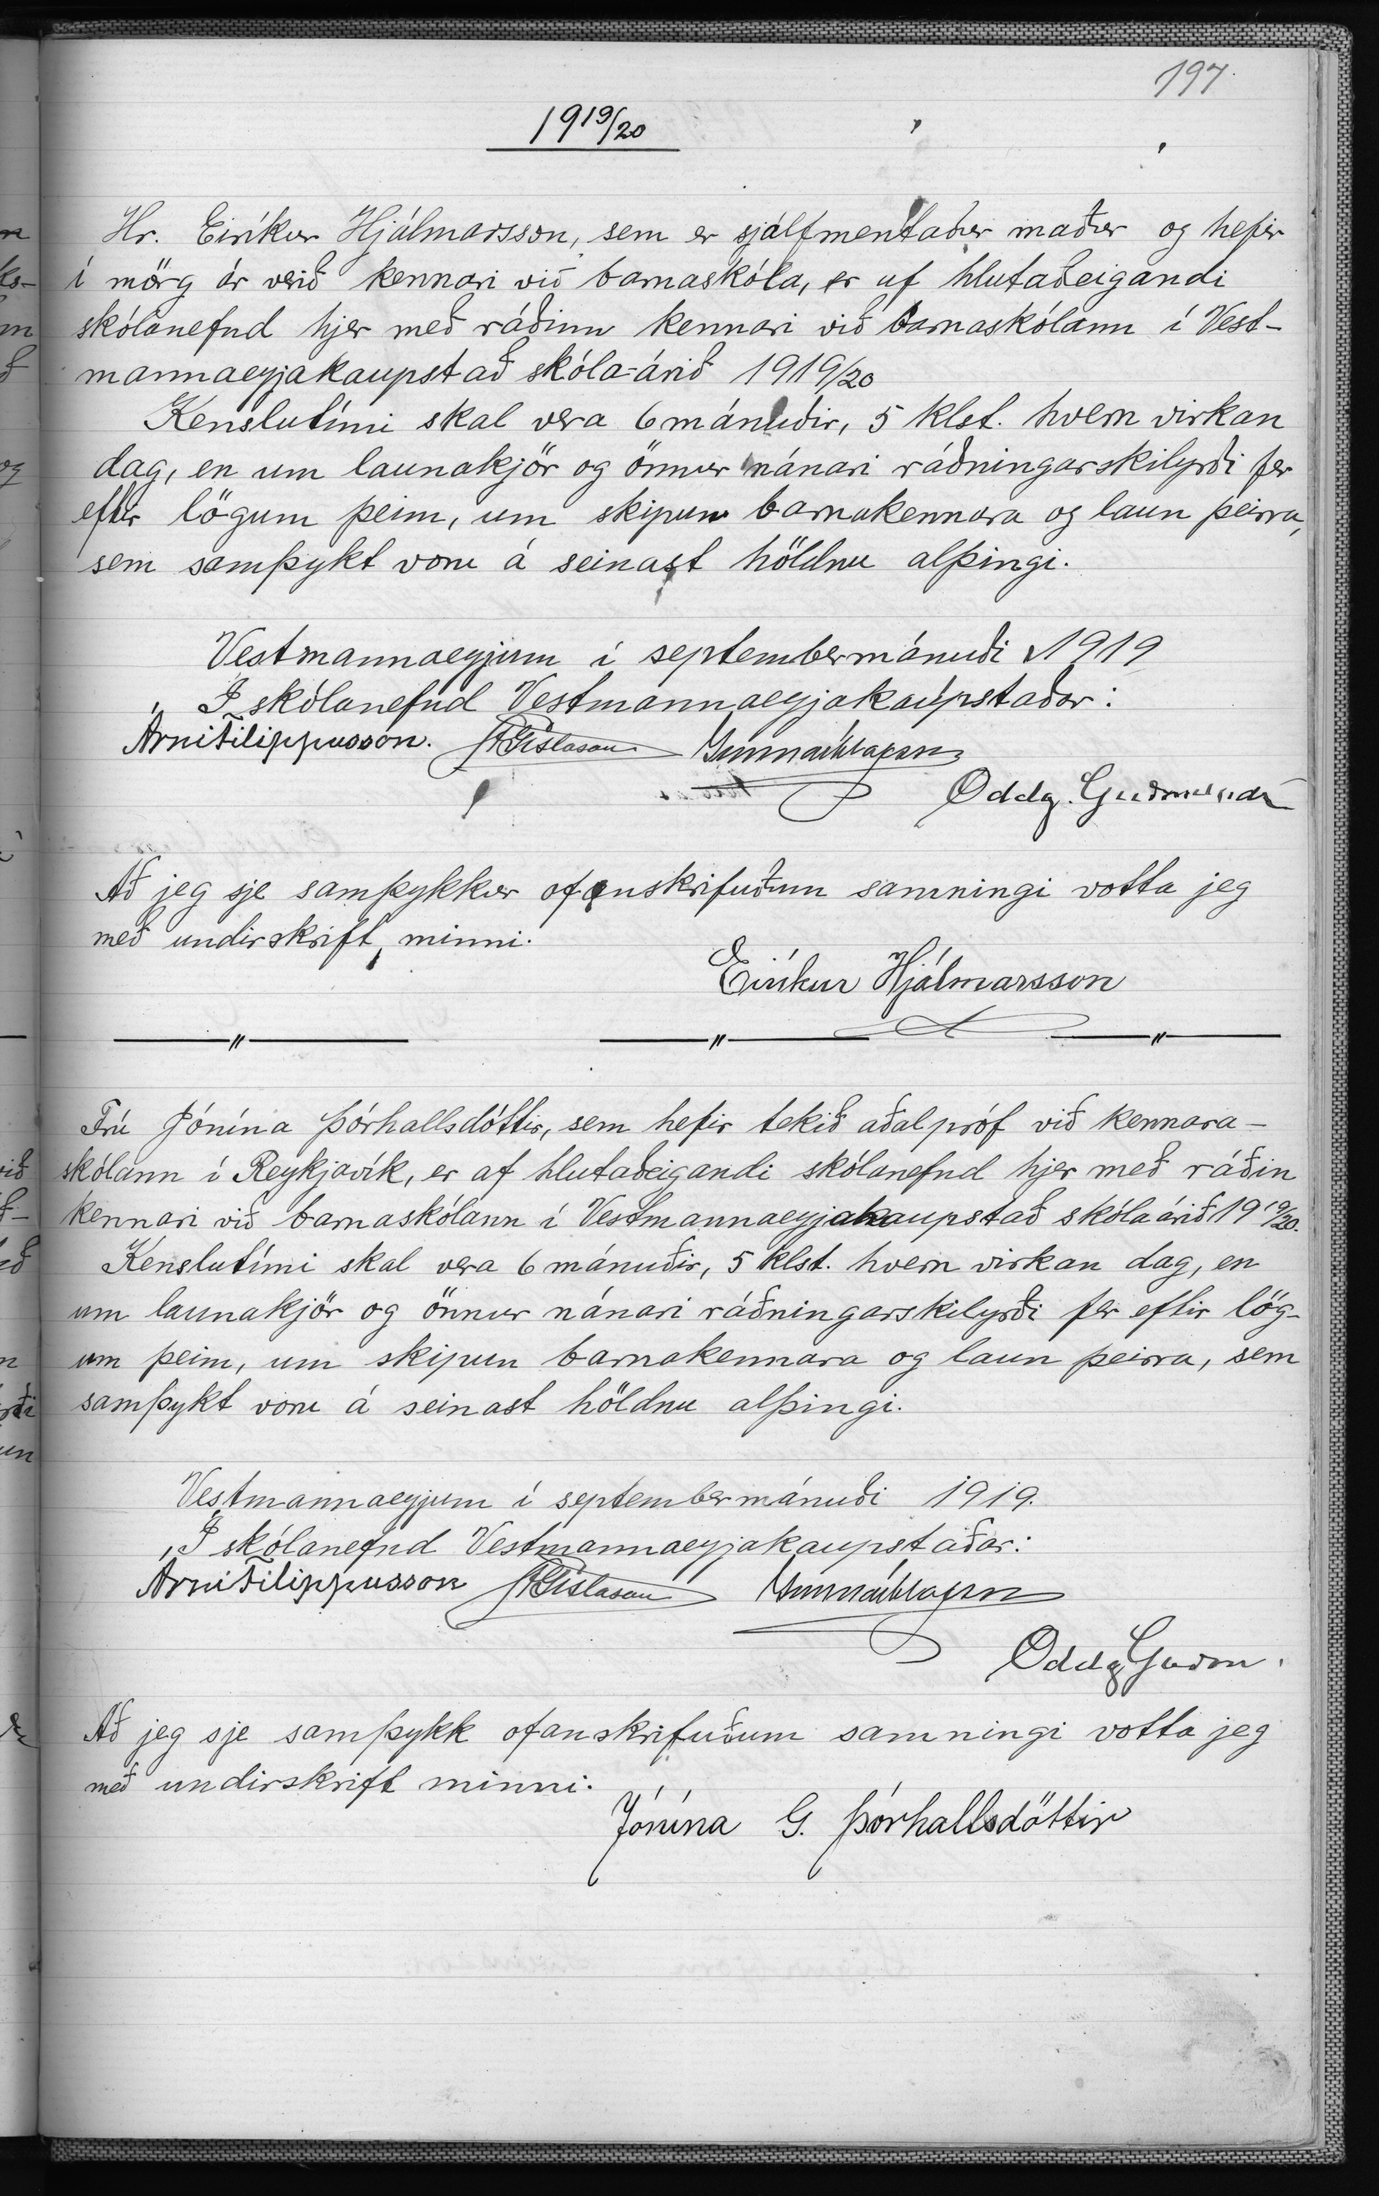 197.
1919/20
Hr. Eiríkur Hjálmarsson, sem er sjálfmentaður maður og hefir
í mörg ár verið kennari við barnaskóla, er af hlutaðeigandi
skólanefnd hjer með ráðinn kennari við barnaskólann í Vest-
mannaeyjakaupstað skóla-árið 1919/20
Kenslutími skal vera 6 mánuðir, 5 klst. hvern virkan
dag, en um launakjör og önnur nánari ráðningarskilyrði fer
eftir lögum þeim, um skipun barnakennara og laun þeirra,
sem samþykt voru á seinast höldnu alþingi.
Vestmannaeyjum í septembermánuði 1919
Í skólanefnd Vestmannaeyjakaupstaðar:
Árni Filippusson. Gíslason Gunnar Ólafsson
Oddg. Guðmunds
Að jeg sje samþykkur ofanskrifuðum samningi votta jeg
með undirskrift minni.
Eiríkur Hjálmarsson
Frú Jónína Þórhallsdóttir, sem hefir tekið aðalpróf við kennara-
skólann í Reykjavík, er af hlutaðeigandi skólanefnd hjer með ráðin
kennari við barnaskólann í Vestmannaeyjakaupstað skólaárið 1919/20.
Kenslutími skal vera 6 mánuðir, 5 klst. hvern virkan dag, en
um launakjör og önnur nánari ráðningarskilyrði fer eftir lög-
um þeim, um skipun barnakennara og laun þeirra, sem
samþykt voru á seinast höldnu alþingi.
Vestmannaeyjum í septembermánuði 1919.
Í skólanefnd Vestmannaeyjakaupstaðar:
Árni Filippusson Gíslason Gunnar Ólafsson
Oddg Guðm.
Að jeg sje samþykk ofanskrifuðum samningi votta jeg
með undirskrift minni.
Jónína G. Þórhallsdóttir